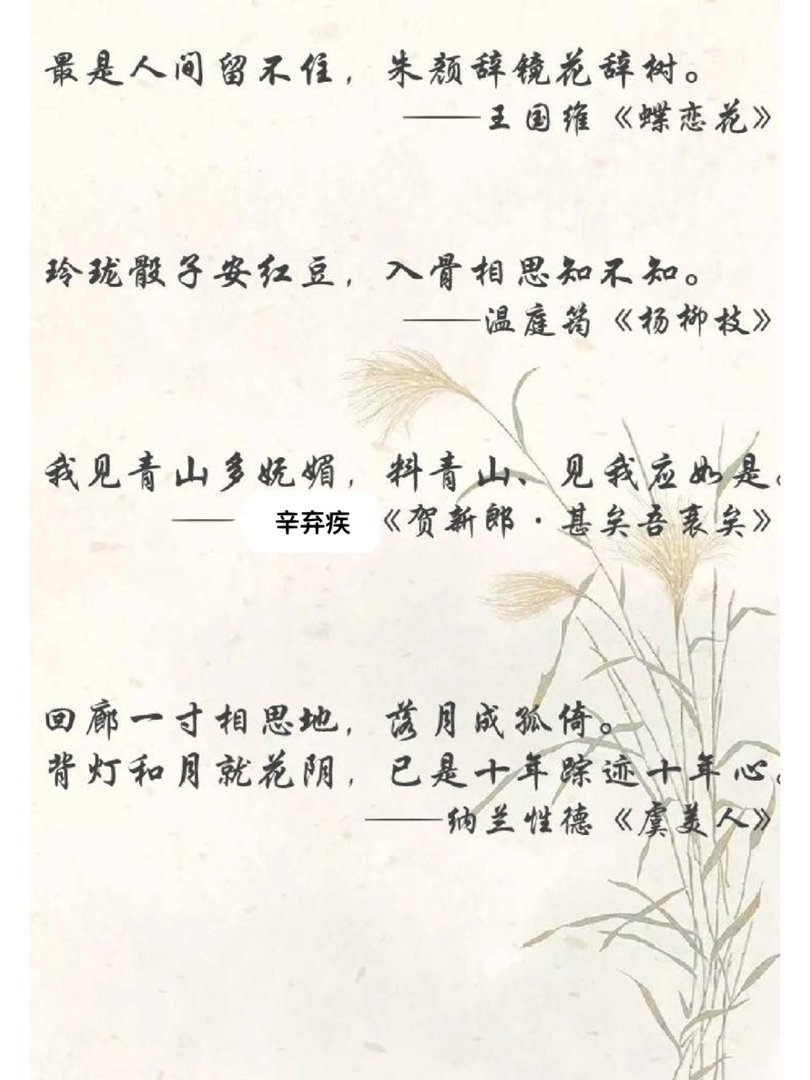 最是人间留不住，朱颜辞镜花辞树。
——王国维《蝶恋花》
玲珑骰子安红豆，入骨相思知不知。
——温庭筠《杨柳枝》
我见青山多妩媚，料青山、见我应如是。
——辛弃疾《贺新郎·甚矣吾衰矣》
回廊一寸相思地，落月成孤倚。
背灯和月就花阴，已是十年踪迹十年心。
——纳兰性德《虞美人》